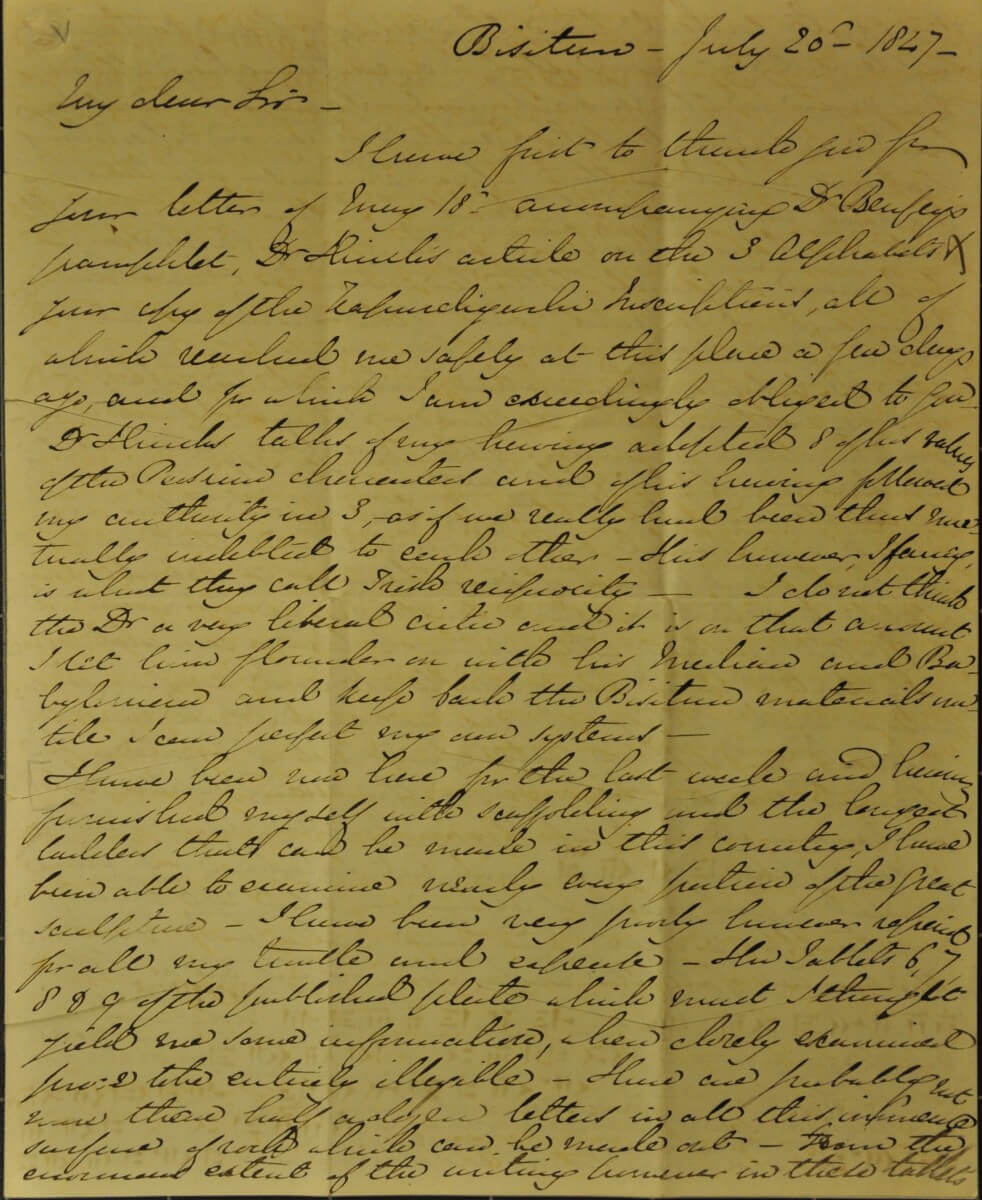 Bisitun – July 20th – 1847 –
My dear Sir –
I have first to thank you for
your letter of May 18th accompanying Dr Benfey's
pamphlet, Dr Hincks's article on the 3 Alphabets &
your copy of the Inscriptions, all of
which reached me safely at this place a few days
ago, and for which I am exceedingly obliged to you.
Dr Hincks talks of my having adopted 8 of his values
of the Persian characters and of his having followed
my authority in 3, – as if we really had been thus mu-
tually indebted to each other – This however, I fancy,
is what they call Irish reciprocity — I do not think
the Dr a very liberal critic and it is on that account
I let him flounder on with his Median and Ba-
bylonian and keep back the Bisitun materials un-
till I can perfect my own systems —
I have been now here for the last week and having
furnished myself with scaffolding and the longest
ladders that could be made in this country, I have
been able to examine nearly every portion of the great
sculpture – I have been very poorly however repaid
for all my trouble and expense – The Tablets 6, 7
8 & 9 of the published plate which must I thought
yield me some information, when closely examined
prove to be entirely illegible – There are probably not
more than half a dozen letters in all this immense
surface of rock which can be made out – From the
enormous extent of the writing however in these tablets